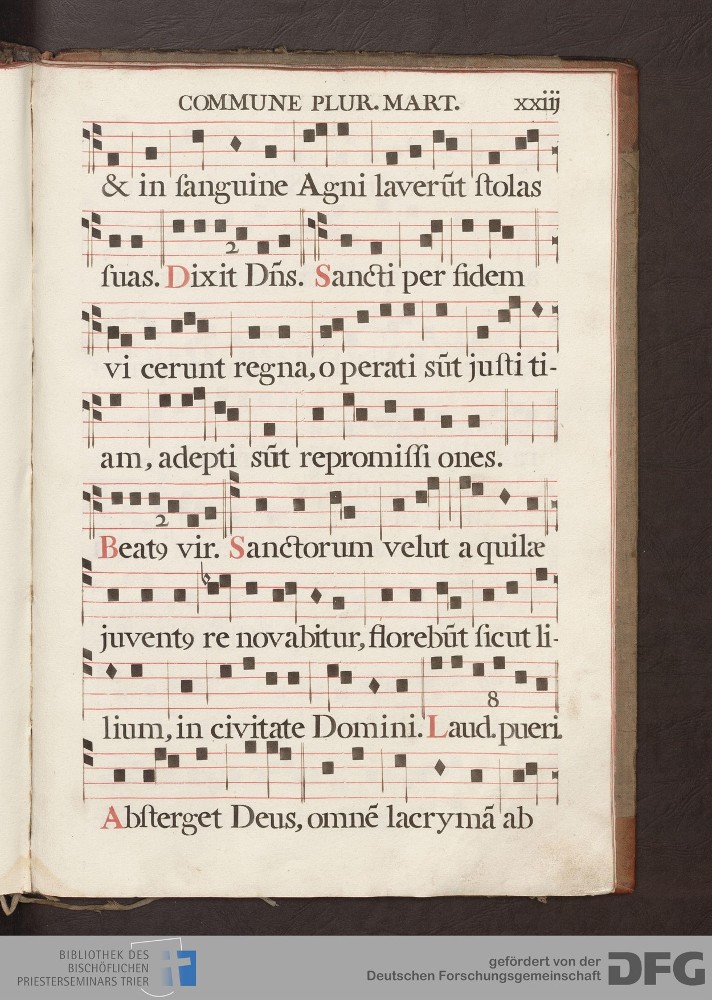 COMMUNE PLUR. MART. xxiij
& in ſanguine Agni laverūt ſtolas
2
ſuas. Dixit Dn̄s. Sancti per fidem
vi cerunt regna, o perati sūt juſti ti-
am, adepti sūt repromiſſi ones.
2
Beatꝯ vir. Sanctorum velut a quilæ
juventꝯ re novabitur, florebūt ſicut li-
8
lium, in civitate Domini. Laud. pueri.
Abſterget Deus, omnē lacrymā ab
BIBLIOTHEK DES
BISCHÖFLICHEN
PRIESTERSEMINARS TRIER
gefördert von der
Deutschen Forschungsgemeinschaft
DFG